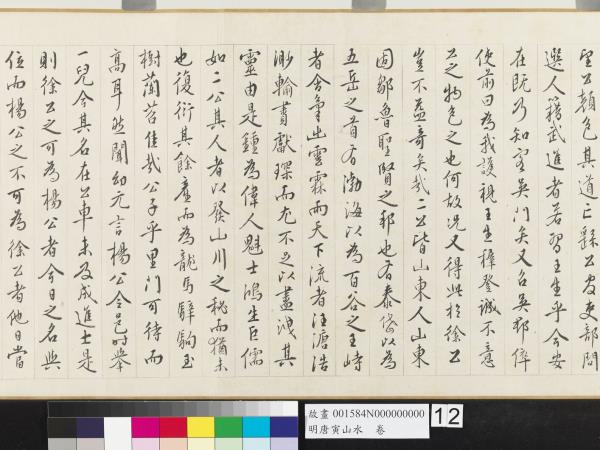 望公顏色其道亡繇公官吏部問
選人籍武進者若習王生乎今安
在既乃知客吳門矣又名吳郡倅
使前曰為我護視王生穉登誠不意
公之物色之也何故況又得此於徐公
豈不益奇矣哉二公皆山東人山東
固鄒魯聖賢之鄉也有泰岱以為
五岳之首有渤海以為百谷之王峙
者含氣出雲霖而天下流者汪濊浩
渺輸賮獻琛而尤不足以盡洩其
靈由是鍾為偉人魁士鴻生巨儒
如二公其人者以發山川之秘而猶未
也復衍其餘廕而為龍馬驊駒玉
樹蘭苕佳哉公子乎里門可待而
高耳然聞幼元言楊公令邑時舉
一兒今其名在公車未及成進士是
則徐公之可為楊公者今日之名與
位而楊公之不可為徐公者他日當
故畫 001584N000000000
明唐寅山水 卷
12